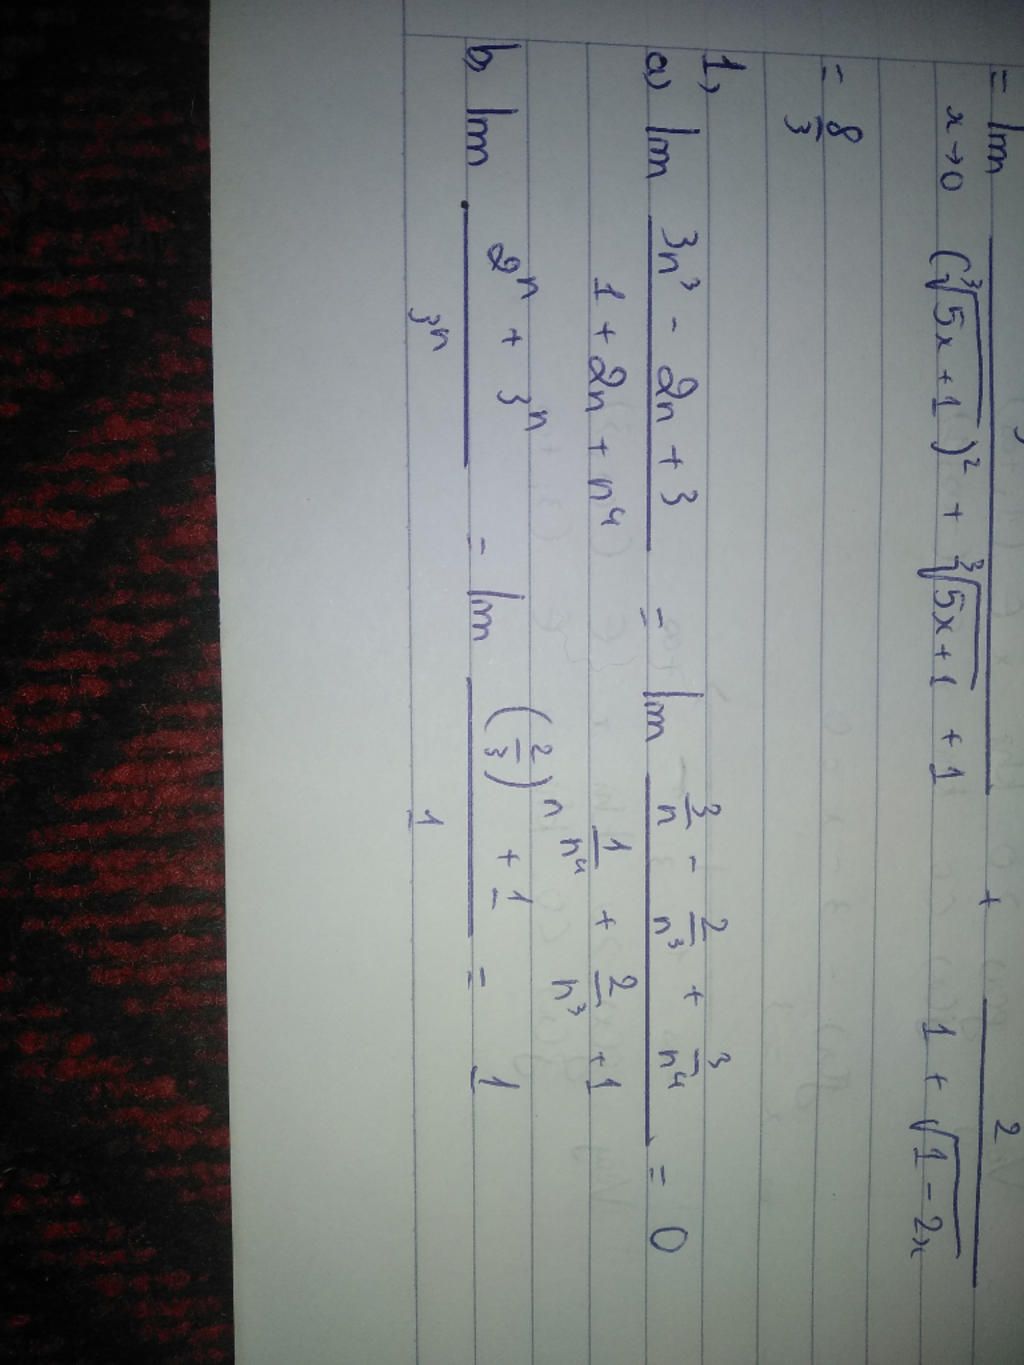 = lim x→0 5/((∛(5x+1))² + ∛(5x+1) + 1) + 2/(1 + √(1-2x))
= 8/3
1,
a) lim (3n³ - 2n + 3)/(1 + 2n + n⁴) = lim (3/n - 2/n³ + 3/n⁴)/(1/n⁴ + 2/n³ + 1) = 0
b, lim (2ⁿ + 3ⁿ)/3ⁿ = lim ((2/3)ⁿ + 1)/1 = 1